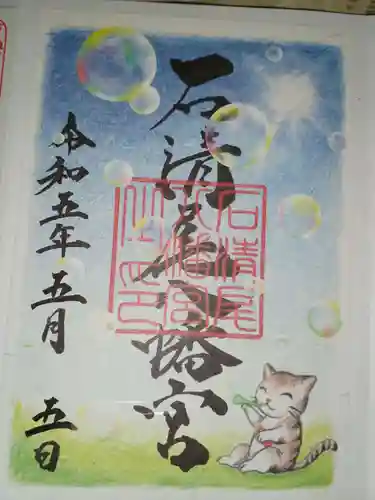 石清尾八幡宮
石清尾
八幡宮
之印
令和五年五月五日